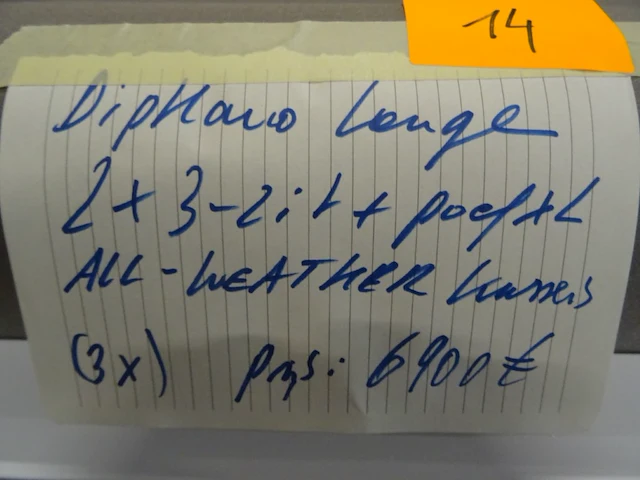 14
Diphano Lounge
2 x 3-zit + poef XL
ALL-WEATHER kussens
(3x) prijs: 6900 €